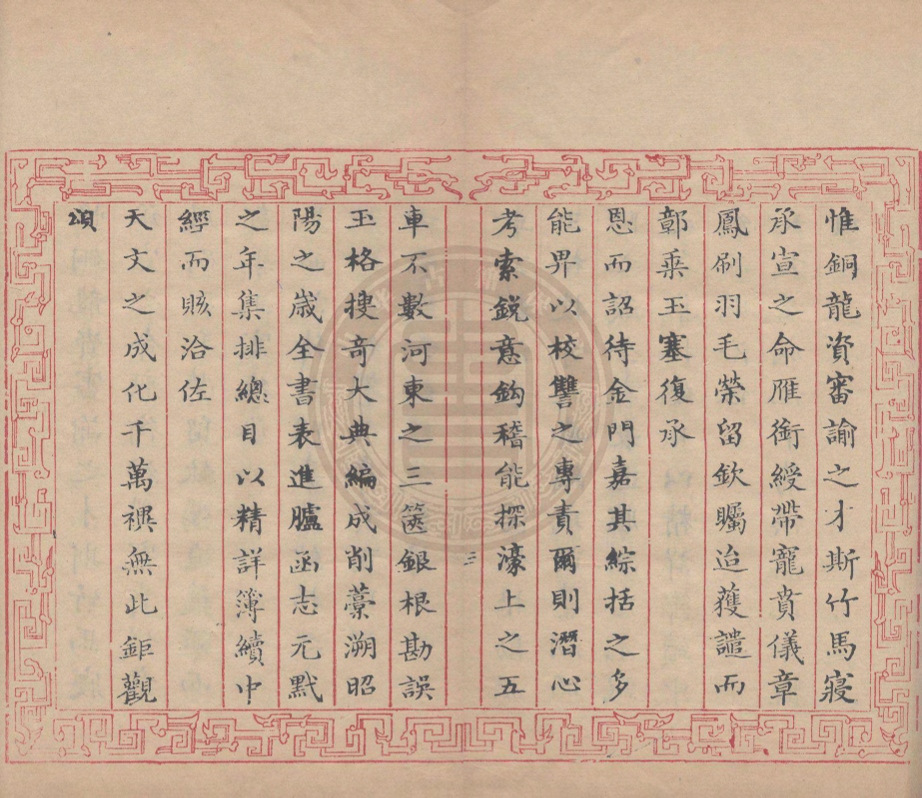 惟銅龍資審諭之才斯竹馬寢
承宣之命雁銜綬帶寵賁儀章
鳳刷羽毛榮留欽矚迨獲譴而
鄣乘玉塞復承
恩而詔待金門嘉其綜括之多
能畀以校讐之專責爾則潛心
考索銳意鈎稽能探濠上之五
三
車不數河東之三篋銀根勘誤
玉格搜奇大典編成削藁溯昭
陽之歲全書表進臚函志元黓
之年集排總目以精詳簿續中
經而賅洽佐
天文之成化千萬禩無此鉅觀
頌